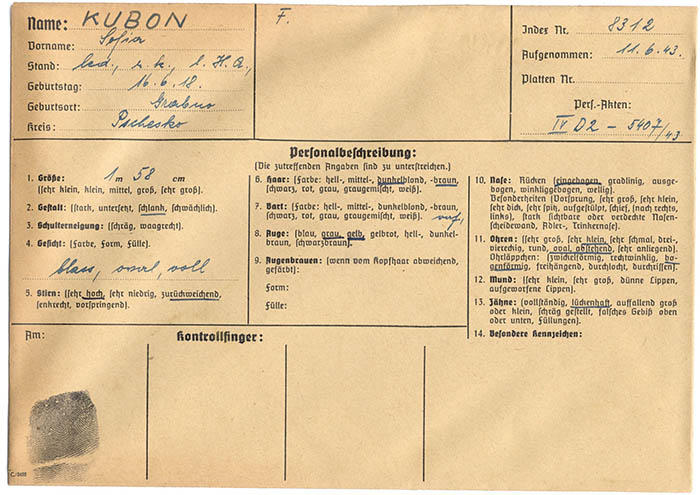 Name: KUBON
Vorname: Sofia
Stand: led., r. k., l. H. A.,
Geburtstag: 16.6.18.
Geburtsort: Grabno
Kreis:
F.
Index Nr. 8312
Aufgenommen: 11.6.43.
Platten Nr.
Pers.-Akten:
IV D2 - 5407/43
Personalbeschreibung:
(Die zutreffenden Angaben sind zu unterstreichen.)
1. Größe: 1 m 58 cm
(sehr klein, klein, mittel, groß, sehr groß).
2. Gestalt: (stark, untersetzt, schlank, schwächlich).
3. Schulterneigung: (schräg, waagrecht).
4. Gesicht: (Farbe, Form, Fülle).
blass, oval, voll
5. Stirn: (sehr hoch, sehr niedrig, zurückweichend,
senkrecht, vorspringend).
6. Haar: (Farbe: hell-, mittel-, dunkelblond, -braun,
schwarz, rot, grau, graugemischt, weiß).
7. Bart: (Farbe: hell-, mittel-, dunkelblond, -braun,
schwarz, rot, grau, graugemischt, weiß).
8. Auge: (blau, grau, gelb, gelbrot, hell-, dunkel-
braun, schwarzbraun).
9. Augenbrauen: (wenn vom Kopfhaar abweichend,
gefärbt):
Form:
Fülle:
10. Nase: Rücken (eingebogen, gradlinig, ausge-
bogen, winkliggebogen, wellig).
Besonderheiten (Vorsprung, sehr groß, sehr klein,
sehr dick, sehr spitz, aufgestülpt, schief, (nach rechts,
links), stark sichtbare oder verdeckte Nasen-
scheidewand, Adler-, Trinkernase).
11. Ohren: (sehr groß, sehr klein, sehr schmal, drei-,
viereckig, rund, oval, abstehend, sehr anliegend).
Ohrläppchen: (zwickelförmig, rechtwinklig, bo-
genförmig, freihängend, durchlocht, durchrissen).
12. Mund: (sehr klein, sehr groß, dünne Lippen,
aufgeworfene Lippen).
13. Zähne: (vollständig, lückenhaft, auffallend groß
oder klein, schräg gestellt, falsches Gebiß oben
oder unten, Füllungen).
14. Besondere Kennzeichen:
Am:
Kontrollfinger: